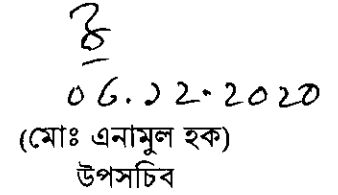 06.12.2020
(মোঃ এনামুল হক)
উপসচিব